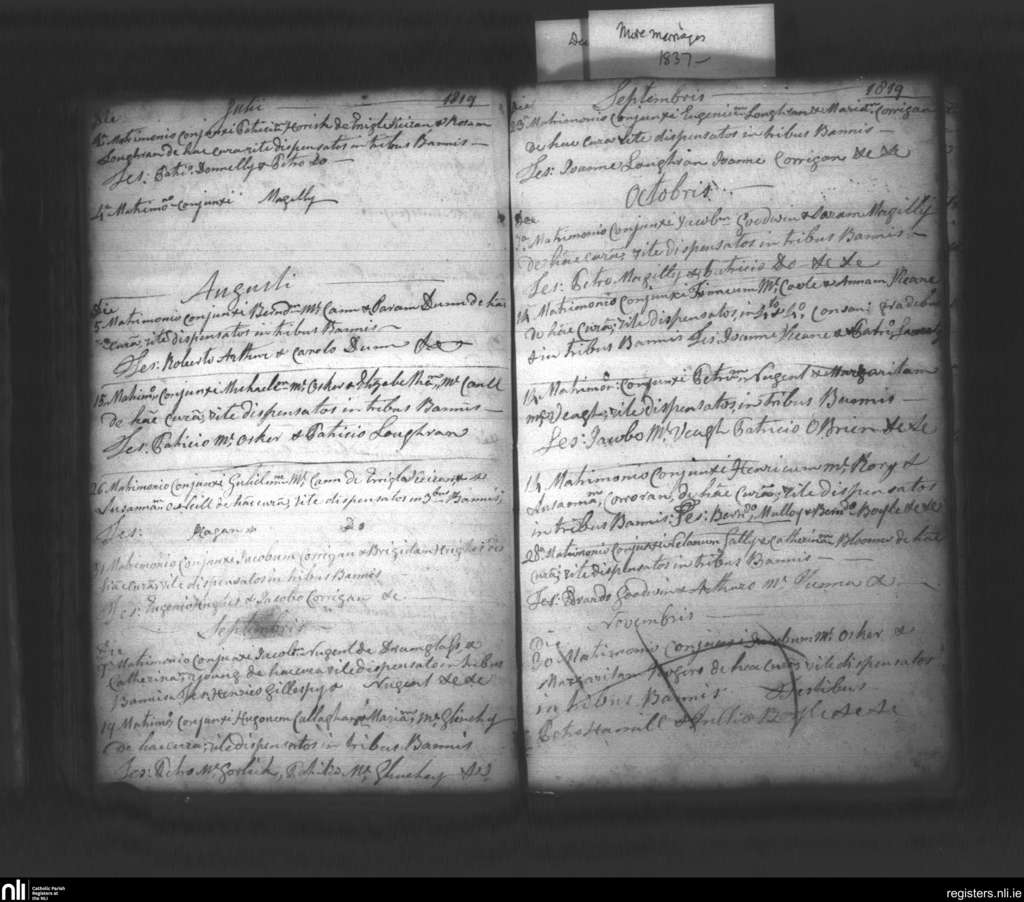 Dec
More marriages
1837
Julii 1819
Die
Matrimonio Conjunxi Patricium Horish de & Rosam
Loughran de hac cura rite dispensatos in tribus Bannis
Tes: Patr: Donnelly & Petro Do
Matrim: Conjunxi Magilly
Augusti
Die
5 Matrimonio Conjunxi Mc Cann & Saram Dunn de hac
cura, rite dispensatos in tribus Bannis
Tes: Roberto Arthur & Carolo Dunn &c
15 Matrim: Conjunxi Michaelem Mc Osker & Mc Caull
de hac cura, rite dispensatos in tribus Bannis
Tes: Paticio Mc Osker & Patricio Loughran
26 Matrimonio Conjunxi Mc Cann de &
Susannam de hac cura, rite dispensatos in 3bus Bannis,
Tes: Hagan & Do
31 Matrimonio Conjunxi Jacobum Corrigan & Brigidam Hughes
hac cura, rite dispensatos in tribus Bannis
Tes: Eugenio Hughes & Jacobo Corrigan &c
Septembris
Die
Matrimonio Conjunxi Jacob: Nugent de &
Catherinam Young de hac cura rite dispensatos in tribus
Bannis Tes: Henrico Gillespy & Nugent &c &c
19 Matrim: Conjunxi Hugonem Callaghan & Mariam Mc Glinchy
de hac cura, rite dispensatos in tribus Bannis
Tes: Petro Mc & Mc Glinchey
Septembris 1819
Die
23 Matrimonio Conjunxi Loughran & Mariam Corrigan
de hac cura rite dispensatos in tribus Bannis
Tes: Joanne Loughran Joanne Corrigan &c &c
Octobris
Die
Matrimonio Conjunxi Jacobum Goodwin & Saram Magilly
de hac cura, rite dispensatos in tribus Bannis
Tes: Petro Magilly & Patricio Do &c &c
14 Matrimonio Conjunxi Mc & Annam Keane
de hac cura, rite dispensatos in Consan: Gradibus
& in tribus Bannis Tes: Joanne Keane &
14 Matrimon: Conjunxi Petrum Nugent & Margaritam
Mc Veagh, rite dispensatos in tribus Bannis
Tes: Jacobo Mc Veagh Patricio O'Brien &c &c
14 Matrimonio Conjunxi Henricum Mc Rory &
Susannam Corroran, de hac cura, rite dispensatos
in tribus Bannis. Tes: Berndo Mulloy & Berndo Boyle &c &c
28 Matrimonio Conjunxi Lally & Catherinam Bloomer de hac
cura, rite dispensatos in tribus Bannis
Tes: Goodwin & Arthuro Mc &c
Novembris
Die
30 Matrimonio Conjunxi Jacobum Mc Osker &
Margaritam de hac cura, rite dispensatos
in tribus Bannis Testibus
Petro Hamill & Boyle &c &c
nli
Catholic Parish
Registers at
the NLI
registers.nli.ie